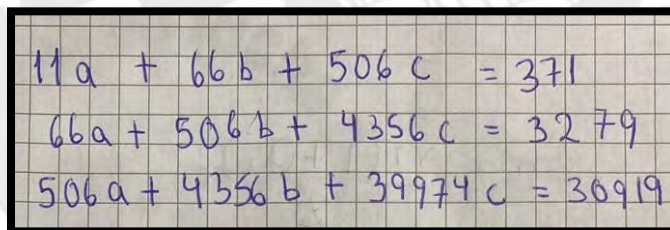 11a + 66b + 506c = 371
66a + 506b + 4356c = 3279
506a + 4356b + 39974c = 30919